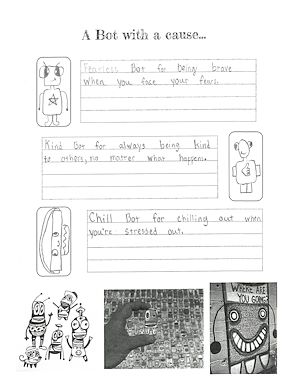 A Bot with a cause...
Fearless Bot for being brave
when you face your fears.
Kind Bot for always being kind
to others, no matter what happens.
Chill Bot for chilling out when
you're stressed out.
WHERE ARE
YOU GOING